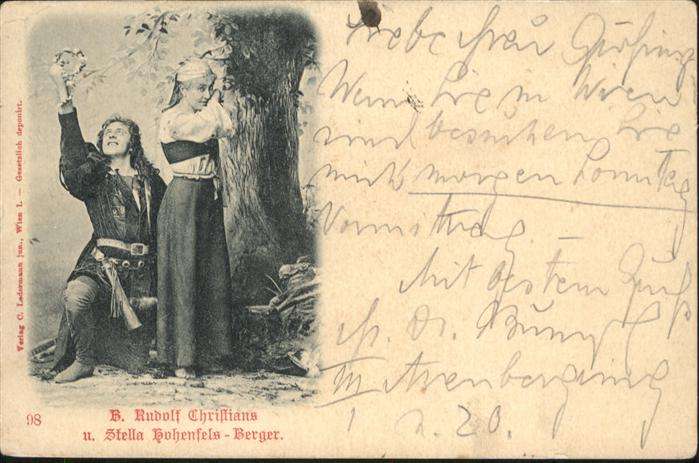 Liebe Frau
Wenn Sie in Wien
sind besuchen Sie
mich morgen Sonntag
Vormittag –
Mit bestem Gruß
Dr.
III Arenbergring
1 n. 20.
Verlag C. Ledermann jun., Wien I. — Gesetzlich deponirt.
98
B. Rudolf Christians
u. Stella Hohenfels-Berger.